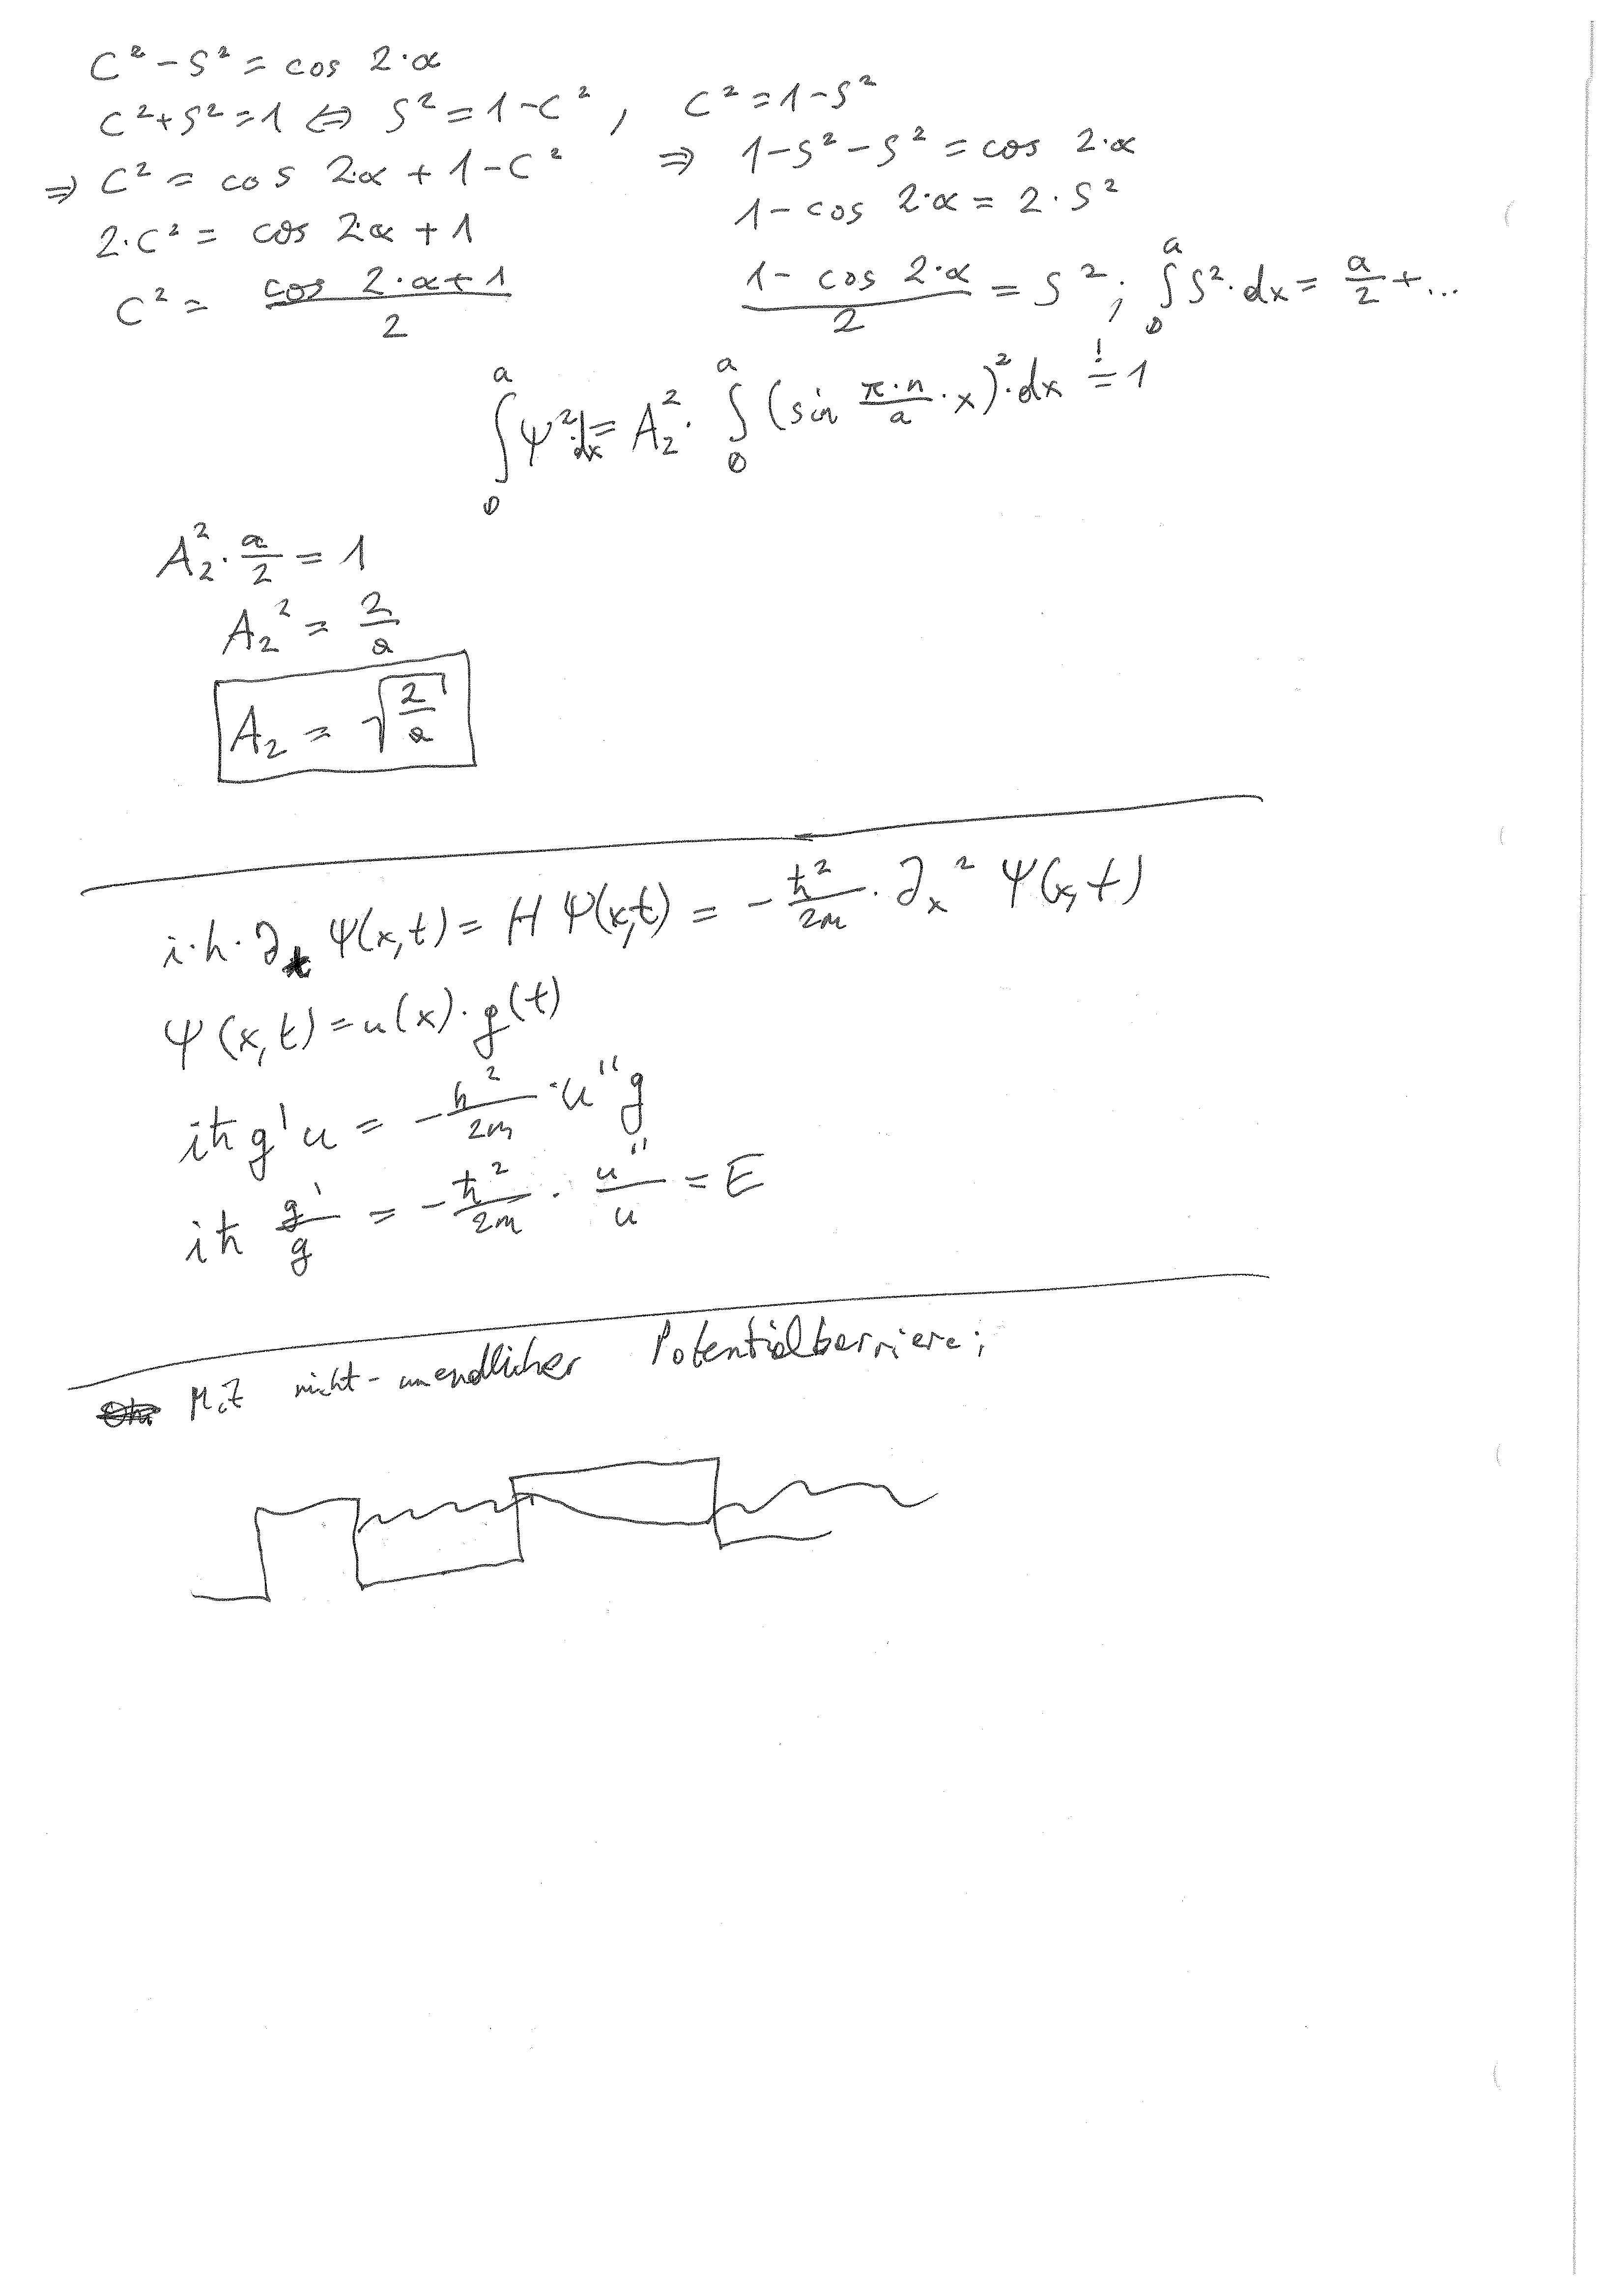 C² - S² = cos 2·α
C² + S² = 1 ⇔ S² = 1 - C² , C² = 1 - S²
⇒ C² = cos 2·α + 1 - C² ⇒ 1 - S² - S² = cos 2·α
2·C² = cos 2·α + 1 1 - cos 2·α = 2·S²
C² = (cos 2·α + 1)/2 (1 - cos 2·α)/2 = S² ; ∫₀ᵃ S²·dx = a/2 + ...
∫₀ᵃ ψ²·dx = A₂² · ∫₀ᵃ (sin (π·n)/a · x)²·dx =! 1
A₂² · a/2 = 1
A₂² = 2/a
A₂ = √(2/a)
i·h·∂t Ψ(x,t) = H Ψ(x,t) = -ħ²/2m · ∂x² Ψ(x,t)
Ψ(x,t) = u(x)·g(t)
iħ g'u = -ħ²/2m · u''g
iħ g'/g = -ħ²/2m · u''/u = E
Mit nicht-unendlicher Potentialbarriere: